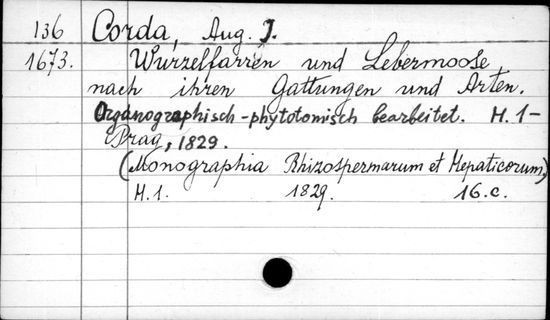 136 Corda, Aug. J.
1673. Wurzelfarren und Lebermoose
nach ihren Gattungen und Arten.
Organographisch-phytotomisch bearbeitet. H.1-
Prag, 1829.
(Monographia Rhizospermarum et Hepaticorum.)
H.1. 1829. 16.c.